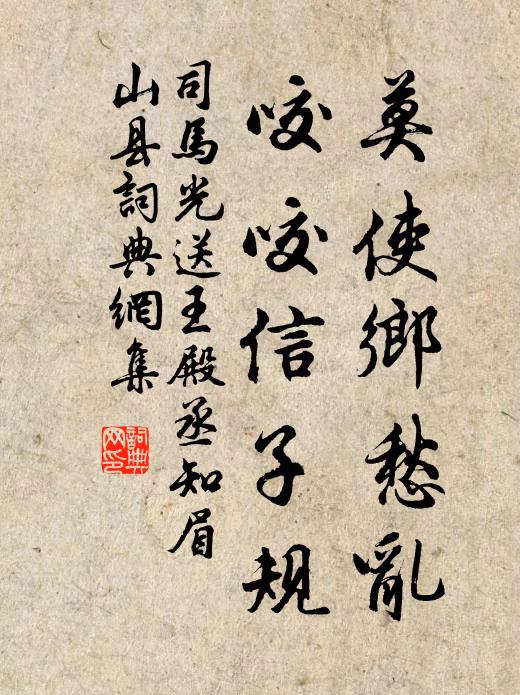 莫使鄉愁亂
咬咬信子規
司馬光送王殿丞知眉
山县詞典網集
詞典网印